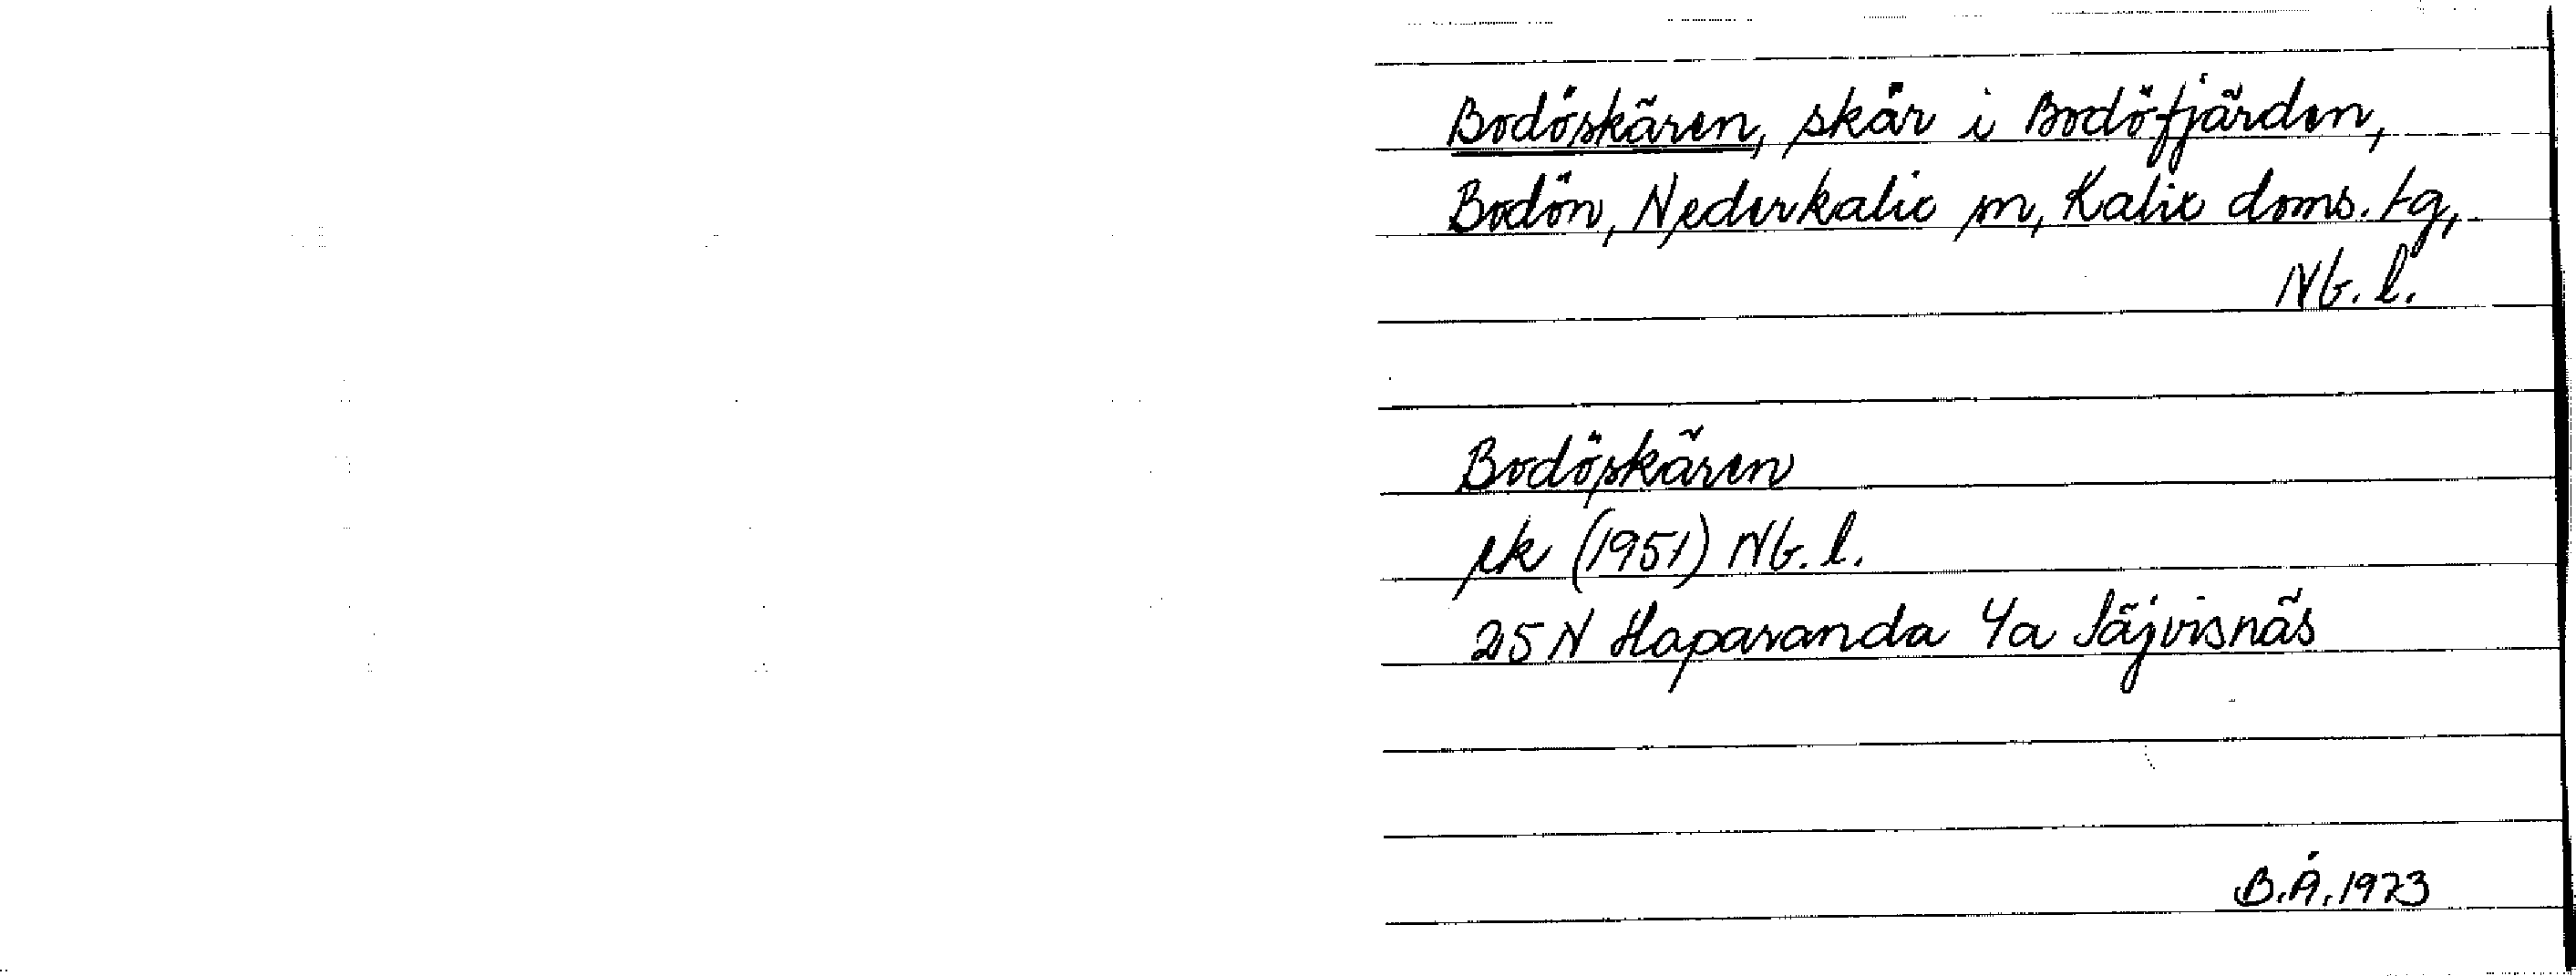 Bodöskären, skär i Bodöfjärden,
Bodön, Nederkalix sn, Kalix doms. tg,
Nb. l.
Bodöskären
ek (1951) Nb. l.
25 N Haparanda 4a Säjvisnäs
B.Å. 1973